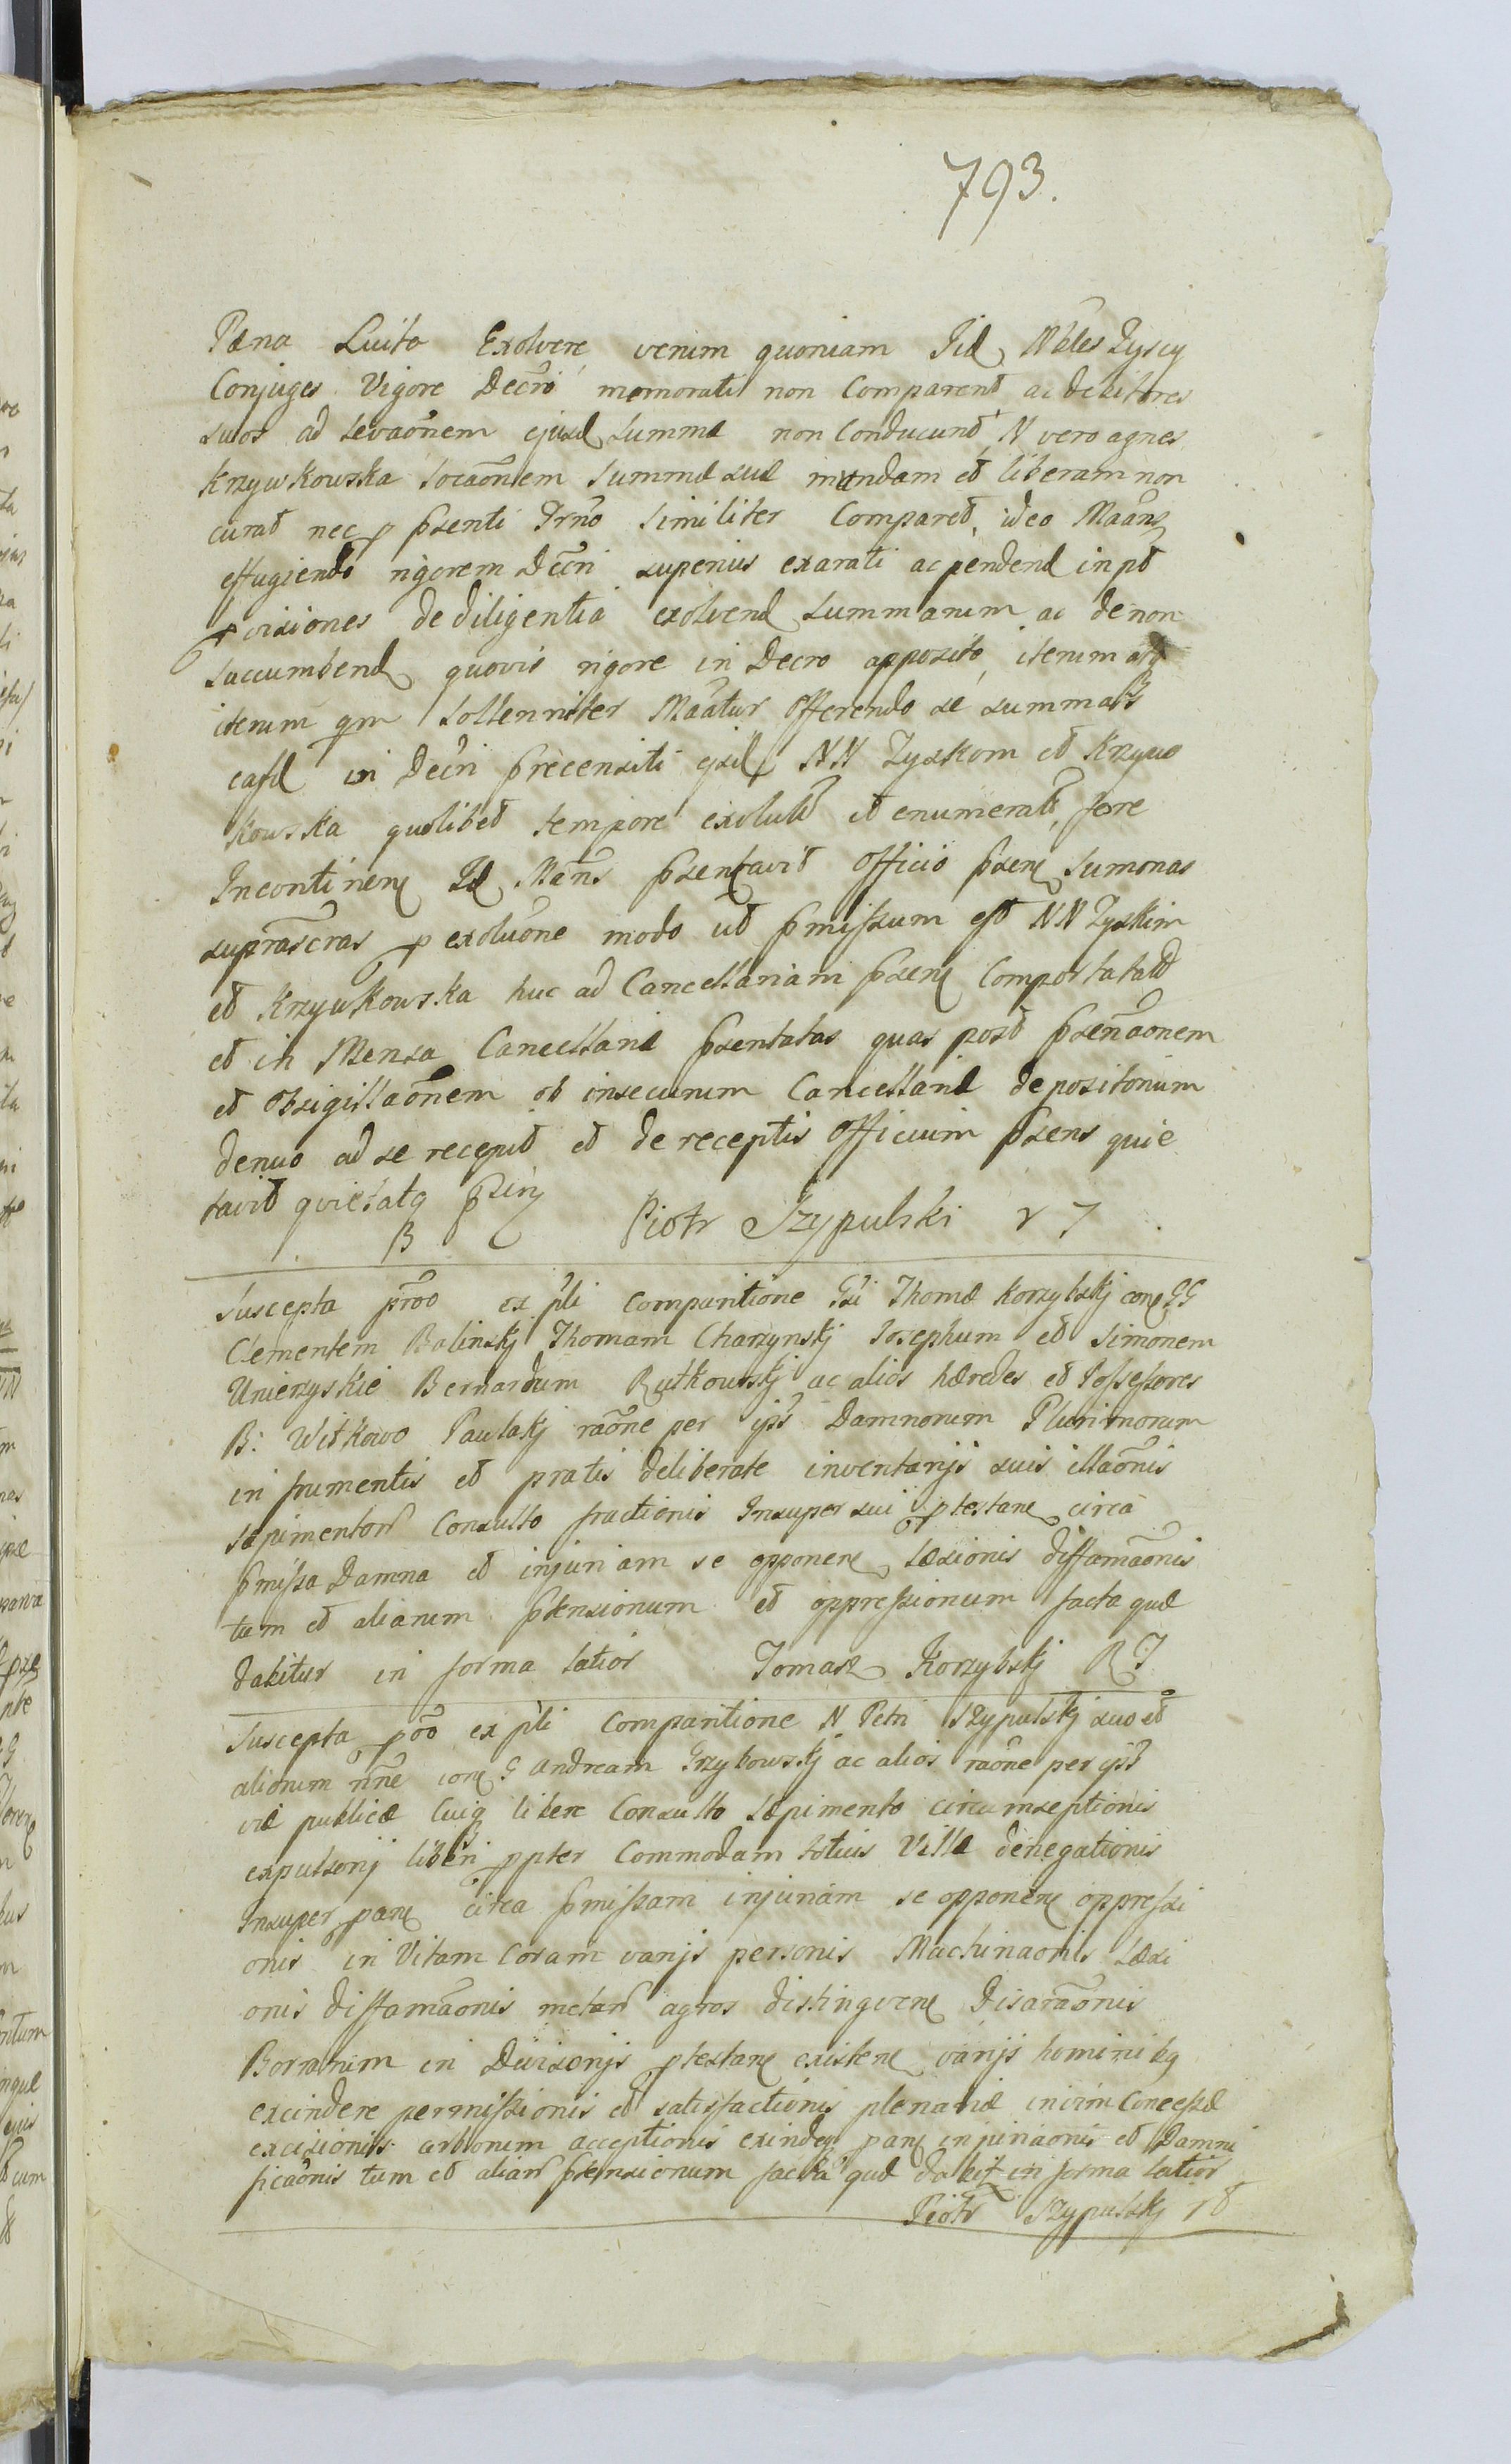 793.
Pæna Luita Exolvere verum quoniam Jid Nbles Zyscy
Conjuges Vigore Decri memorati non Comparent ac debitores
suos ad levaõnem ejusd Summæ non Conducunt N vero agnes
Krzywkowska locaõnem Summæ suæ mundam et liberam non
curat nec p pſsenti Trno Similiter Comparet ideo Maãns
effugiendo rigorem Decri superius exarati ac pendend inpt
pvisiones de diligentia exolvend Summarum ac de non
succumbend quovis rigore in Decro apposito iterum atq
iterum qm Sollenniter Maãtur Offerendo se summas
easd in Decri præcensiti ejsd NN Zyskom et Krzyw
kowska quolibet tempore exolut et enumerat, fore
Incontinen Id Mãns pſsentavit Officio pſsen Sumonas
suprascras p exoluõne modo ut pmiſsum est NN Zyskim
et Krzywkowska huc ad Cancellariam pſsen Comportatas
et in Mensa Cancellariæ pſsentatas quas post pſsenãonem
et Obsigillaõnem ob insecurum Cancellariæ depositorium
denuo ad se recepit et de receptis Officium pſsens quie
tavit quietatq pſsin
Piotr Szypulski
Suscepta prõo ex pli Comparitione Gsi Thomæ Korzybskj con GG
Clementem Bolinskj Thomam Charzynskj Josephum et Simonem
Unierzyskie Bernardum Rutkowskj ac alios hæredes et Poſseſsores
B: Witkowo Pawlakj raõne per ipſs Damnorum Plurimorum
in frumentis et pratis deliberate inventarijs suis illaõnis
sæpimentor Consulto fractionis Insuper sui ptestan circa
pmiſsa Damna et injuriam se opponen Læsionis diffamaõnis
tum et aliarum ptensionum et oppreſsionum facta quæ
dabitur in forma latior Tomasz Korzybskj
Suscepta prõo ex pli Comparitione N Petri Szypulskj suo et
aliorum nñe con G andream Grzybowskj ac alios raõne per ipſs
viæ publicæ Cuiq libere Consulto Sæpimento circumseptionis
expulsorij liberi ppter Commodam totius Villæ denegationis
Insuper pan circa pmiſsam injuriam se opponen oppreſsi
onis in Vitam Coram varijs personis Machinaonis Læsi
onis diffamaõnis metar agros distinguen Disaraõnis
Borrarum in Divisorijs ptestan existen varijs hominibq
excindere permiſsionis et satisfactionis plenariæ inirim Conceſsæ
excisionis arborum acceptionis exindeq pan injuriaonis et Damni
ficaõnis tum et aliar ptensionum facta quæ dabit in forma latior
Piotr Szypulskj